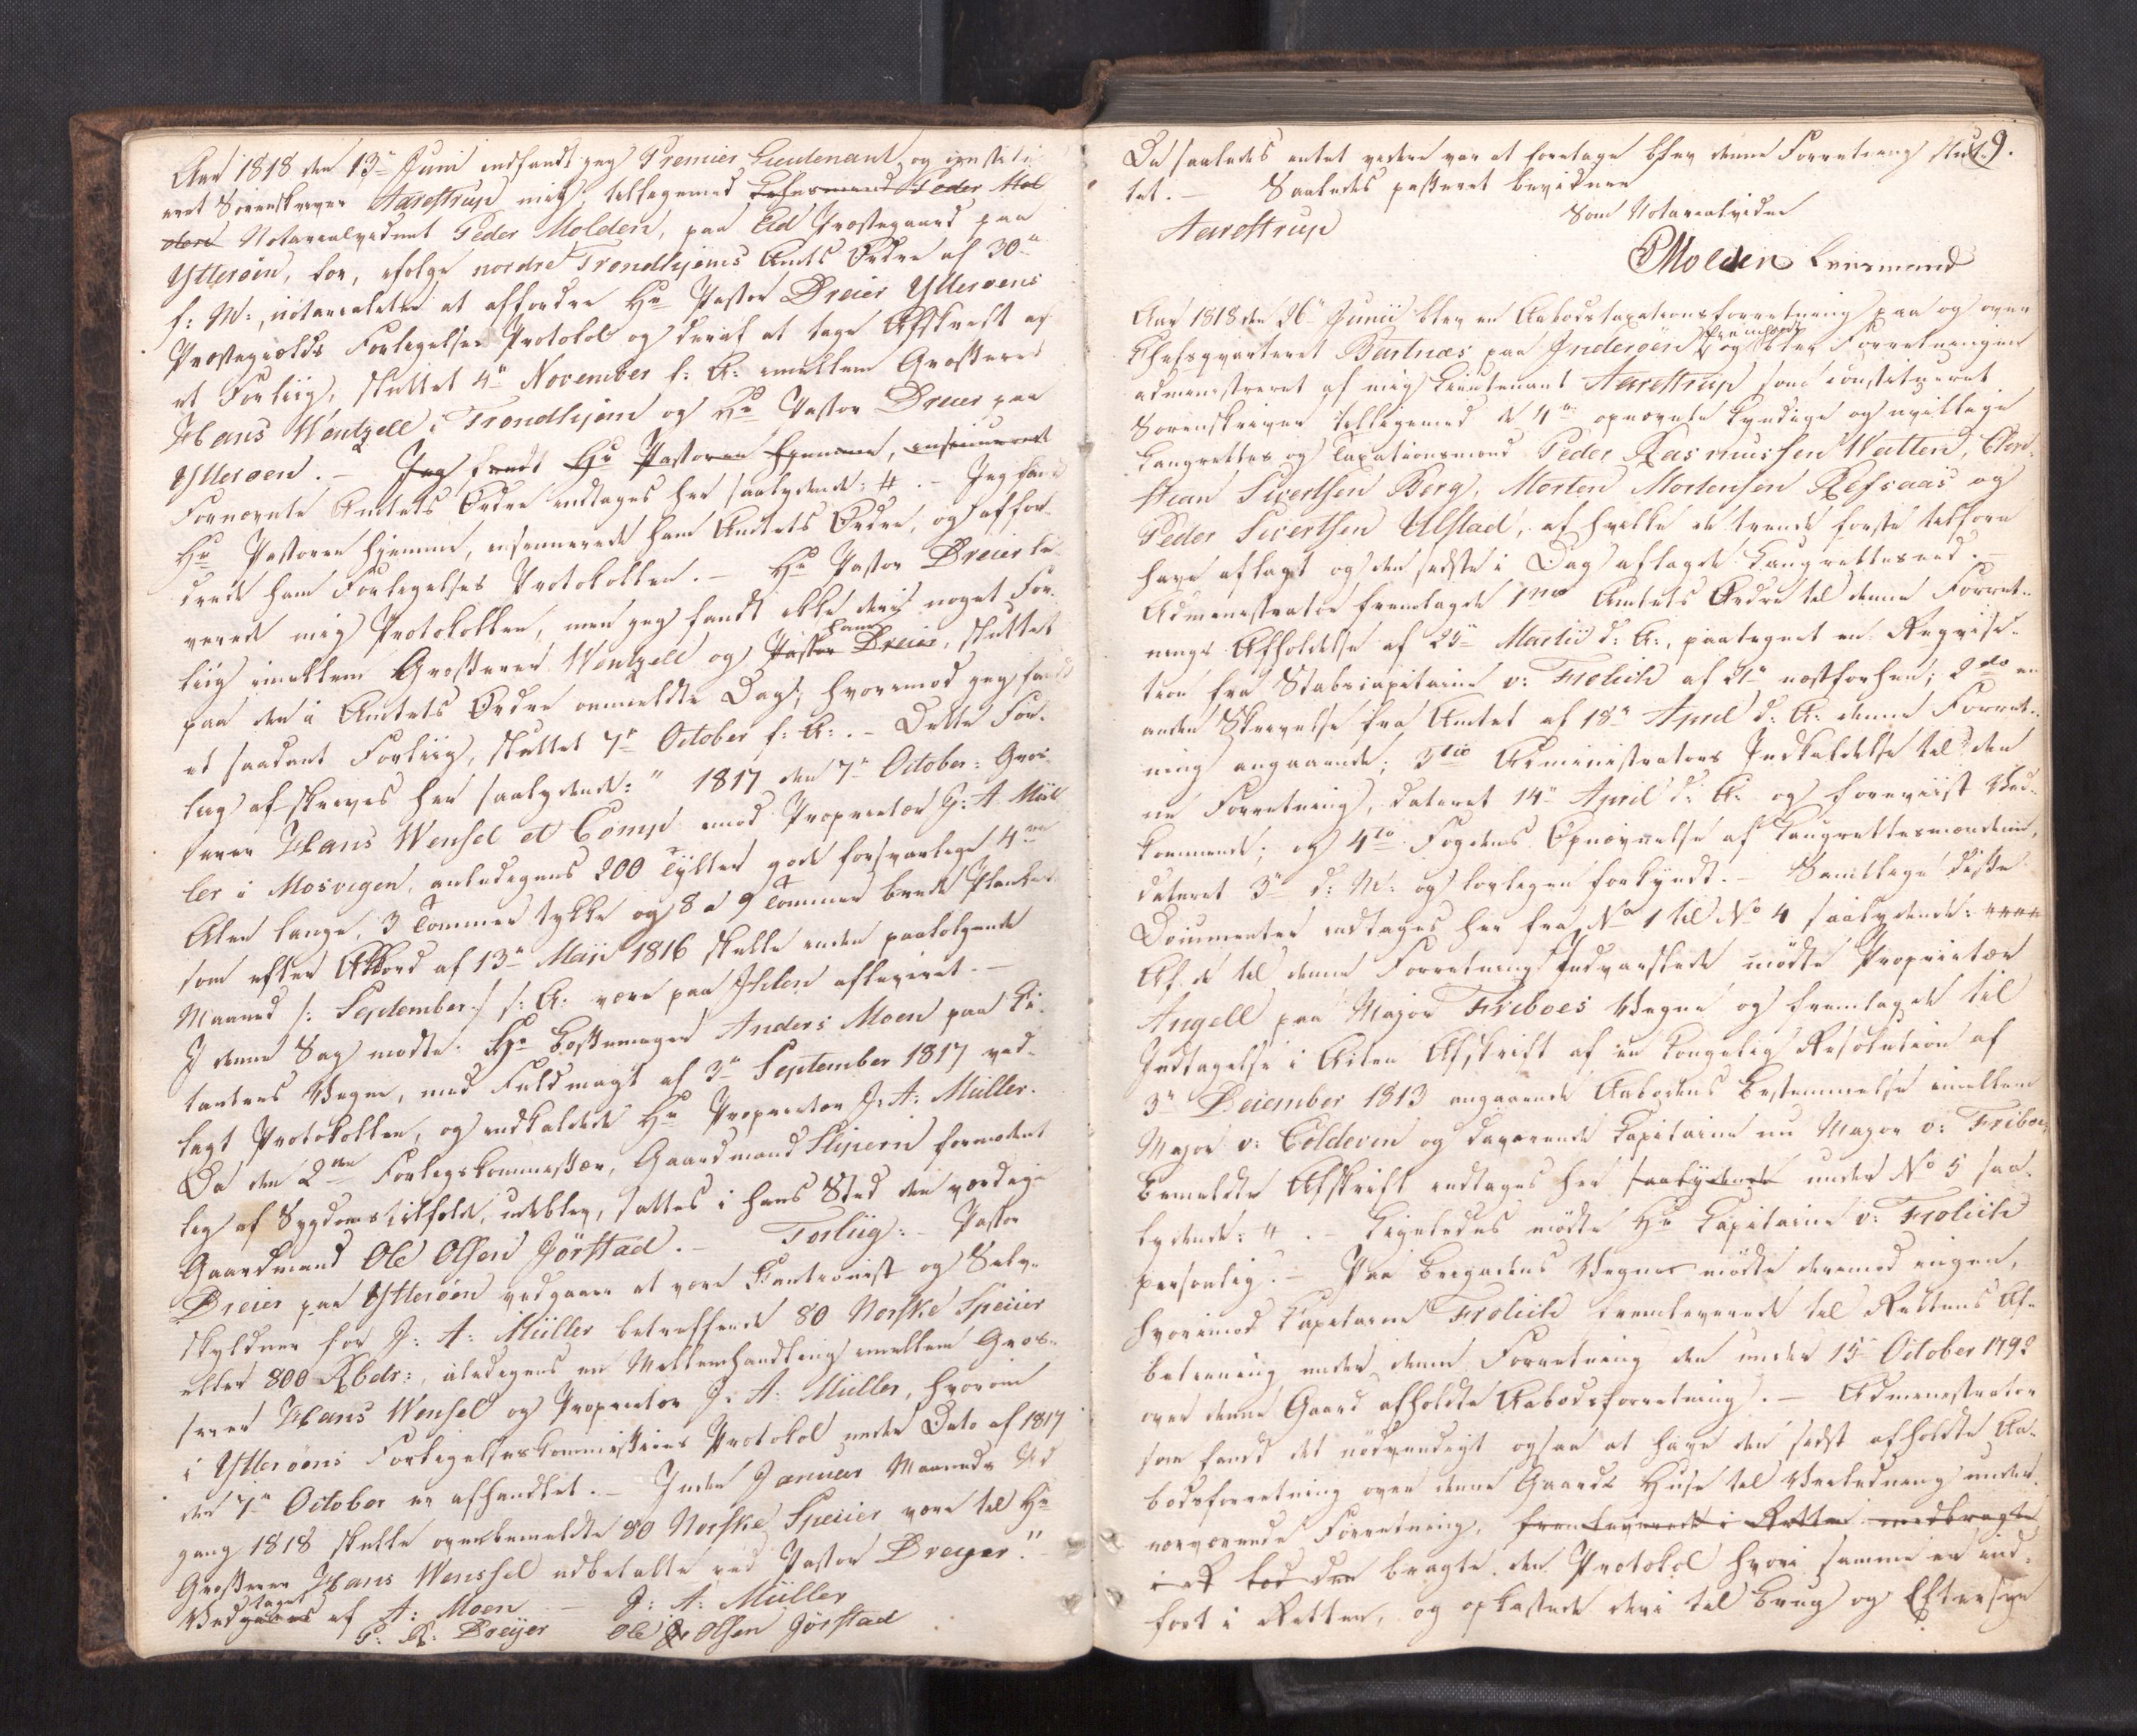 Aar 1818 den 13de Juni indfandt jeg Premier Lieutenant og constitu-
eret Sorenskriver Aarestrup mig, tilligemed Lehnsmand Peder Mol
deren Notarialvidnet Peder Molden, paa Eid Præstegaard paa
Ytterøen, for, ifølge nordre Trondhjems Amts Ordre af 30te
f: M:, notarialiter at affordre Hr Pastor Dreier Ytterøens
Præstegields Forligelses Protokol og deraf at tage Afskrift af
et Forliig, sluttet 4de November f: A: imellem Grosserer
Hans Wentzell i Trondhjem og Hr Pastor Dreier paa
Ytterøen. – Jeg fandt Hr Pastoren hjemme, insinuerede
Fornævnte Amtets Ordre indtages her saalydende: #. – Jeg fandt
Hr Pastoren hjemme, insinuerede ham Amtets Ordre, og affor-
drede ham Forligelses Protokollen. – Hr Pastor Dreier le-
verede mig Protokollen, men jeg fandt ikke deri noget For-
liig imellem Grosserer Wentzell og Pastor Dreier ham, sluttet
paa den i Amtets Ordre ommeldte Dag; hvorimod jeg fandt
et saadant Forliig, sluttet 7de October f: A:. – Dette For-
liig afskrives her saalydende: " 1817 den 7de October: Gros-
serer Hans Wensel et Comp imod Proprietær J: A. Mül
ler i Mosvigen, anledigens 200 Tylter gode forsvarlige 4re
Alen lange, 3 Tommer tykke og 8 a 9 Tommer brede Planker
som efter Akkord af 13de Maii 1816 skulle inden paafølgende
Maaned /: September :/ s: A: være paa Ihlen afleveret. –
I denne Sag mødte: Hr Bossemager Anders Moen paa Ci-
tantens Vegne, med Fuldmagt af 3de September 1817 ved-
lagt Protokollen, og indkaldede Hr Proprietær J: A: Müller.
Da den 2den Forligskommissær, Gaardmand Stjpern formodent
lig af Sygdomstilfælde, udeblev, sattes i hans Sted den værdige
Gaardmand Ole Olsen Jørstad. – Forliig: – Pastor
Dreier paa Ytterøen vedgaaer at være Kautionist og Selv-
skyldner for J: A: Müller betreffende 80 Norske Specier
eller 800 Rbdr:, anledigens en Mellemhandling imellem Gros-
serer Hans Wensel og Proprietær J: A: Müller, hvorom
i Ytterøens Forligelseskommissions Protokol under Dato af 1817
den 7de October er afhandlet. – Inden Januar Maaneds Ud
gang 1818 skulle ovenbemeldte 80 Norske Specier være til Hr
Grosserer Hans Wenssel udbetalte ved Pastor Dreyer." –
Vedgaaes taget af A: Moen – J: A: Müller
P: R: Dreyer Ole Olsen Jørstad
Da saaledes intet videre var at foretage blev denne Forretning slut- 9.
tet. – Saaledes passeret bevidner
Aarestrup Som Notarialvidne
PMolden Lensmand
Aar 1818 den 26de Junii blev en Aabodstaxationsforretning paa og over
Chefsqvarteret Bartnæs paa Inderøen foretaget og blev Forretningen
administreret af mig Lieutenant Aarestrup som constitueret
Sorenskriver tilligemed de 4re opnævnte kyndige og uvillige
Laugrettes og Taxationsmænd Peder Rasmussen Watten, Chri-
stian Sivertsen Berg, Morten Mortensen Refsaas og
Peder Sivertsen Ulstad, af hvilke de trende første tilforn
have aflagt og den sidste i Dag aflagde Laugrettesæd. –
Administrator fremlagde 1mo Amtets Ordre til denne Forret-
nings Afholdelse af 25de Martii d: A:, paategnet en Reqvisi-
tion fra Stabscapitaine v: Frolich af næstforhen; 2do en
anden Skrivelse fra Amtet af 18de April d: A: denne Forret-
ning angaaende; 3tio Administrators Indkaldelse til den
ne Forretning, dateret 14de April d: A: og foreviist Ved-
kommende; og 4to Fogdens Opnævnelse af Laugrettesmændene,
dateret 3de d: M: og lovligen forkyndt. – Samtlige disse
Documenter indtages her fra No 1 til No 4 saalydende: """"
Af de til denne Forretning Indvarslede mødte Proprietær
Angell paa Major Friboes Vegne og fremlagde til
Indtagelse i Acten Afskrift af en kongelig Resolution af
3de December 1813 angaaende Aabodens Bestemmelse imellem
Major v: Coldevin og daværende Capitaine nu Major v: Friboe;
bemeldte Afskrift indtages her saalydende under No 5 saa-
lydende: ". – Ligeledes mødte Hr Capitaine v: Frolich
personlig. – Paa Brigadens Vegne mødte derimod ingen,
hvorimod Capitaine Frolich fremleverede til Rettens Af-
betienning under denne Forretning den under 15de October 1792
over denne Gaard afholdte Aabodsforretning. – Administrator
som fandt det nødvendigt ogsaa at have den sidst afholdte Aa-
bodsforretning over denne Gaards Huse til Veiledning under
nærværende Forretning, fremleverede i Retten medbragte
bragte den Protokol hvori samme er ind-
ført i Retten, og opkastede den til Brug og Eftersyn